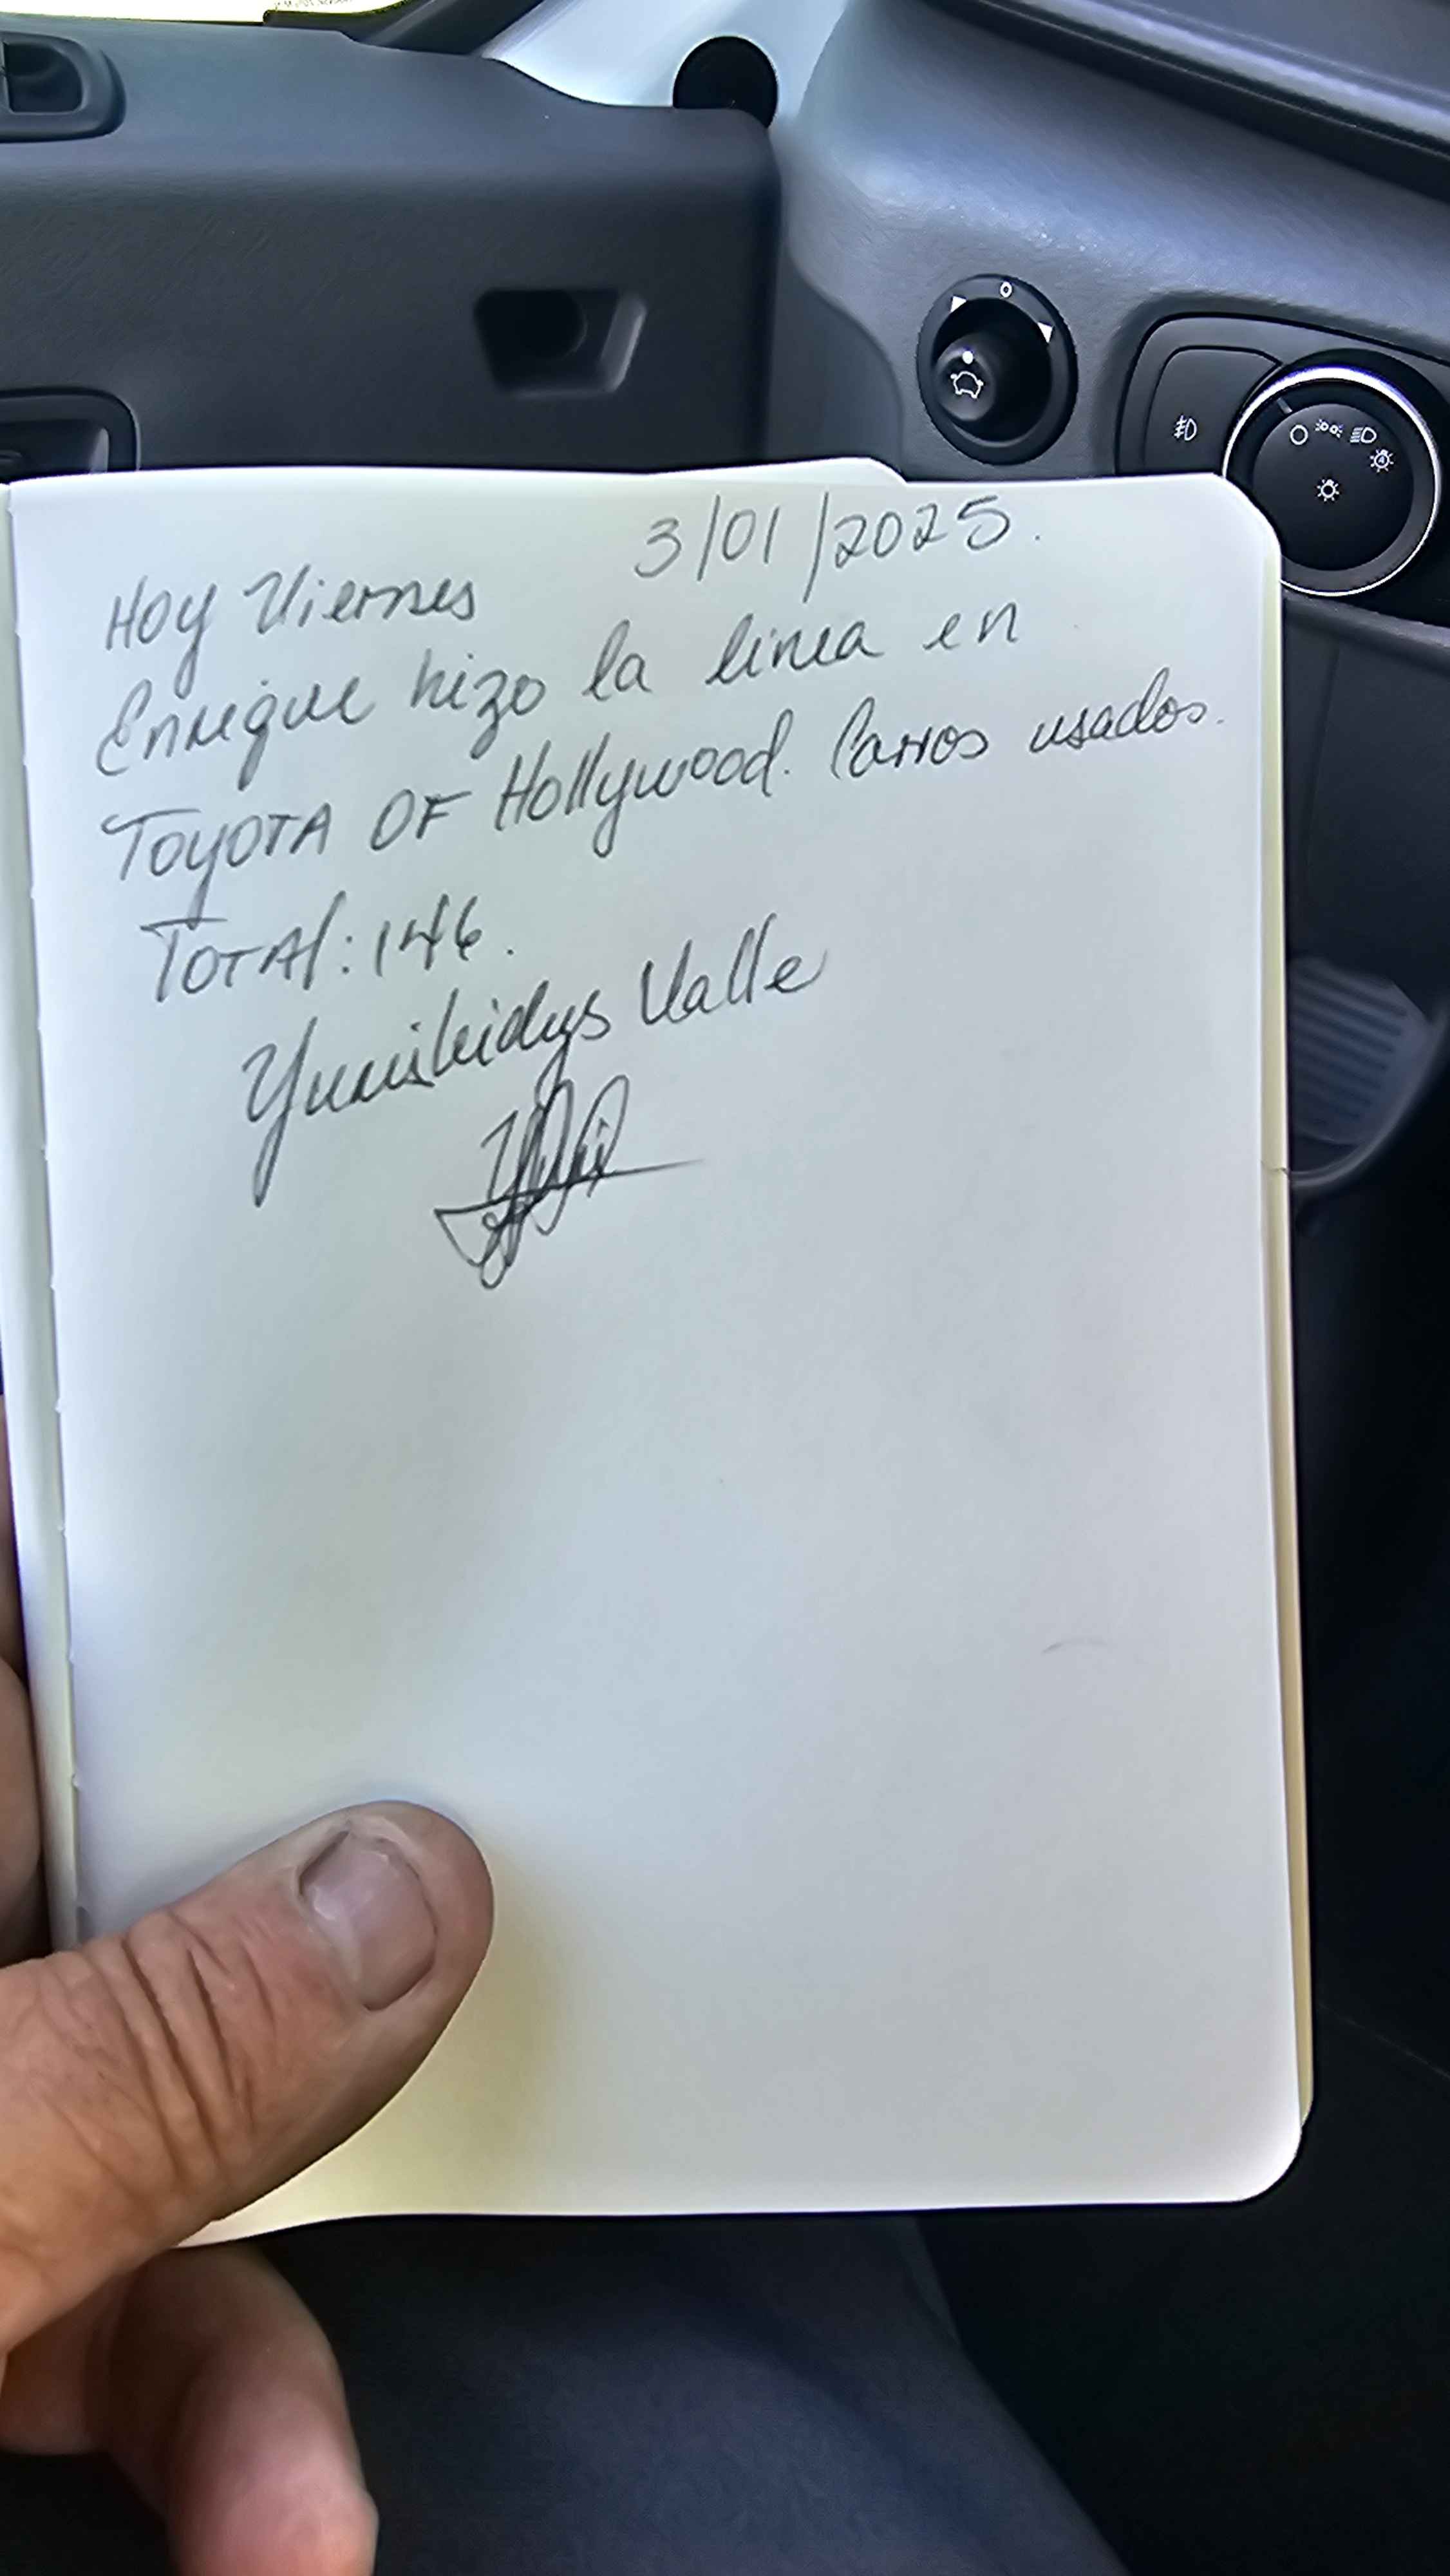 3/01/2025.
Hoy Viernes
Enrique hizo la linea en
TOYOTA OF Hollywood. Carros usados.
TOTAL: 146.
Valle